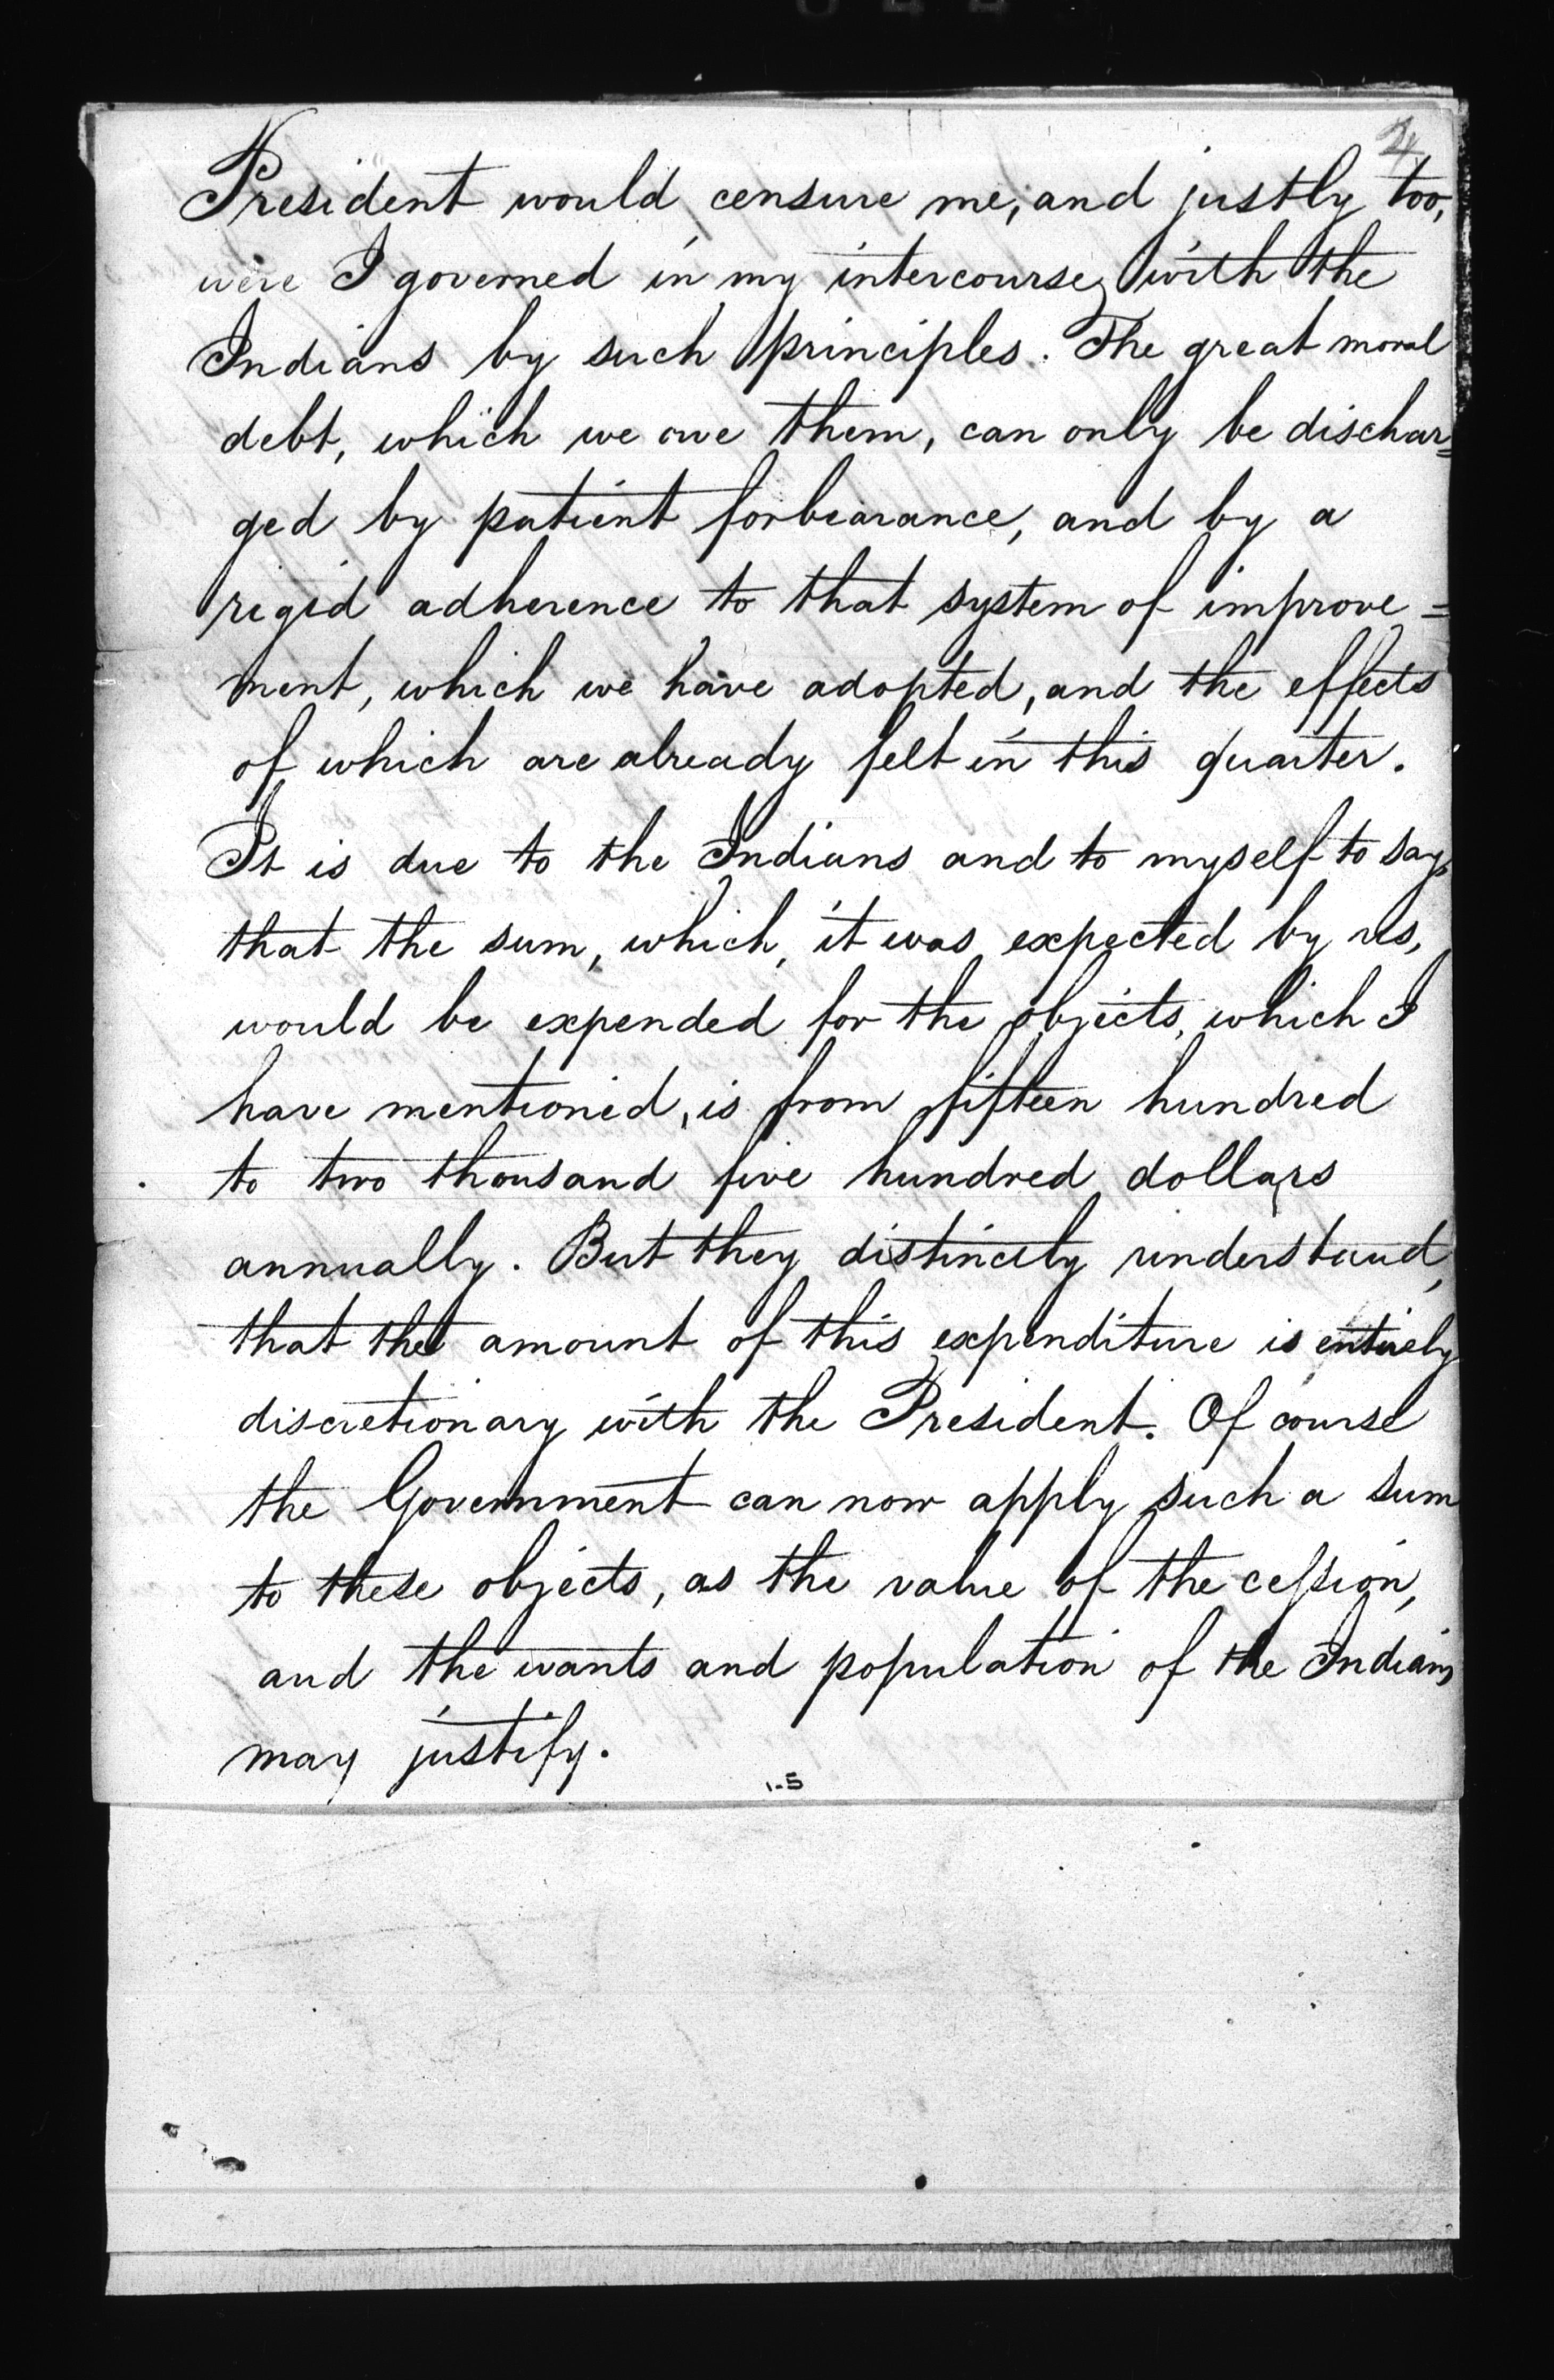 4
President would censure me, and justly too,
were I governed in my intercourse with the
Indians by such principles. The great moral
debt, which we owe them, can only be dischar=
ged by patient forbearance, and by a
rigid adherence to that system of improve=
ment, which we have adopted, and the effects
of which are already felt in this quarter.
It is due to the Indians and to myself to say,
that the sum, which, it was expected by us,
would be expended for the objects, which I
have mentioned, is from fifteen hundred
to two thousand five hundred dollars
annually. But they distinctly understand,
that the amount of this expenditure is entirely
discretionary with the President. Of course
the Government can now apply such a sum
to these objects, as the value of the cession,
and the wants and population of the Indians
may justify.
1-5